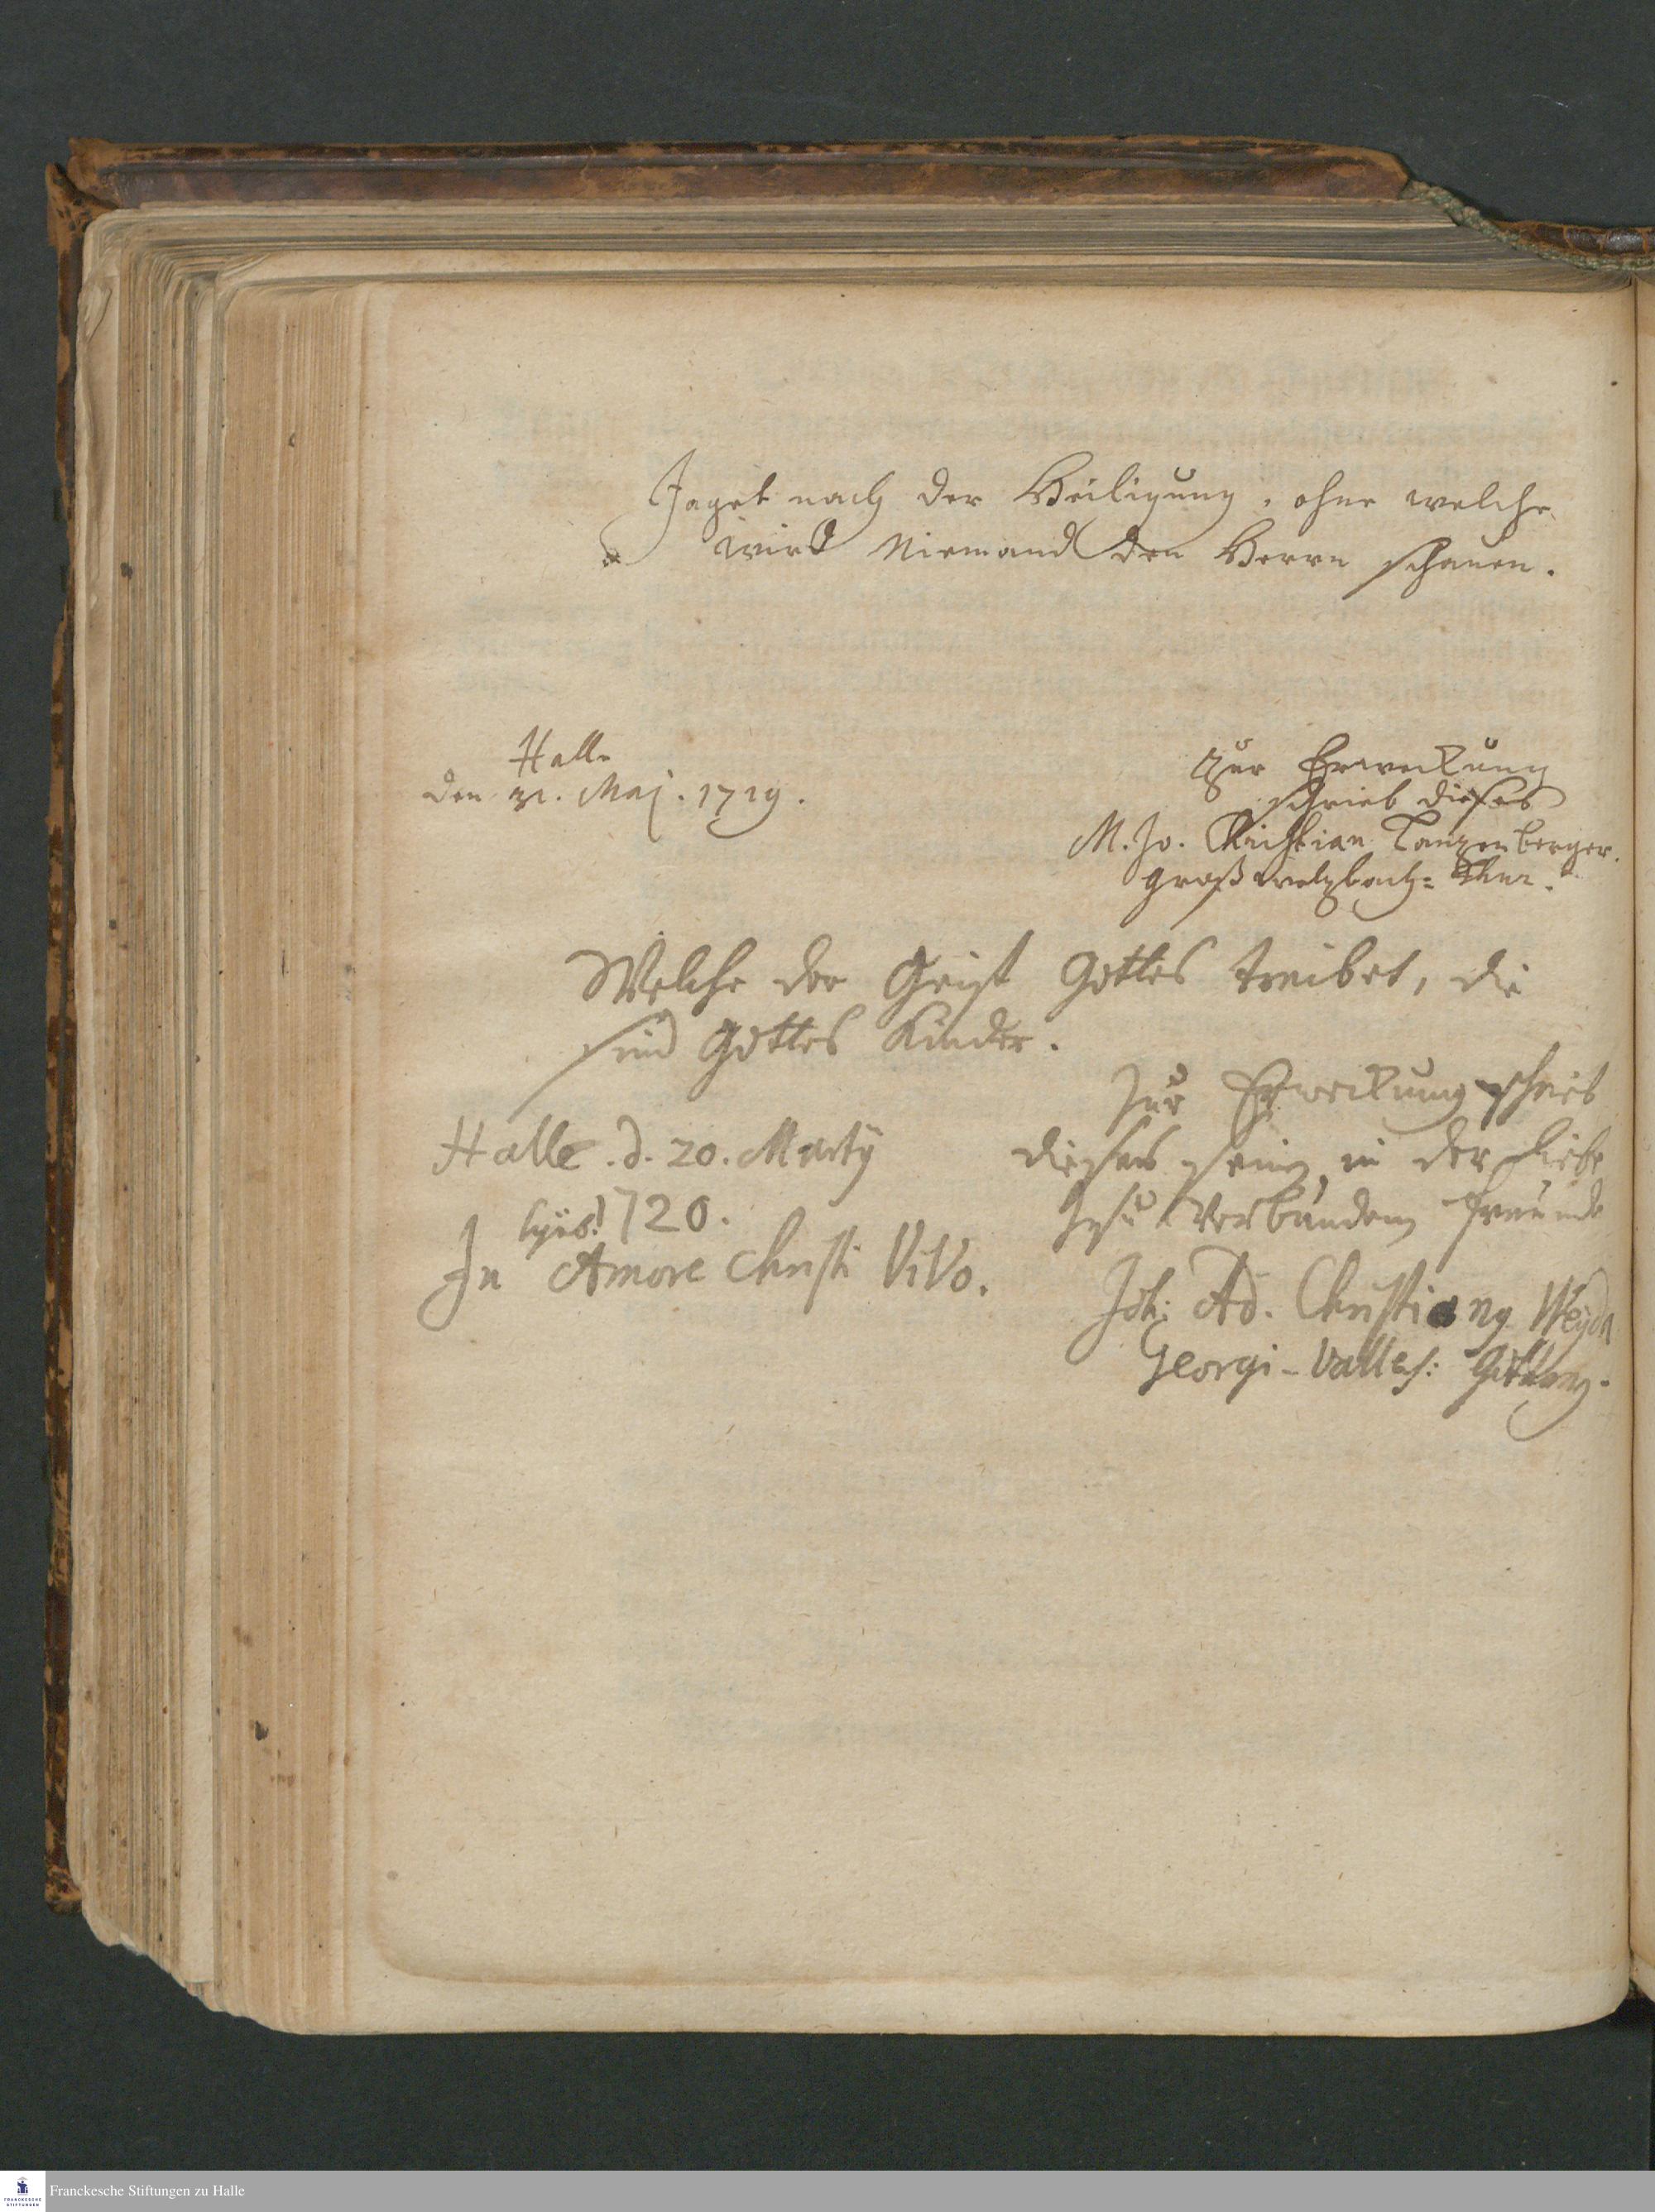 Jaget nach der Heiligung, ohne welche
wird Niemand den Herrn schauen.
Halle
den 31. Maj. 1719.
Zur Erweckung
schrieb dieses
M. Jo. Christian Tanzenberger.
Großwelzbach= Thur.
Welche der Geist Gottes treibet, die
sind Gottes Kinder.
Halle. d. 20. Martÿ
1720.
In Amore Christi ViVo.
Zur Erweckung schrieb
dieses seinen in der Liebe
Jesu Verbundenen Freunde
Joh: Ad. Christian Weyda
Georgi-Valles:
Franckesche Stiftungen zu Halle
FRANCKESCHE
STIFTUNGEN